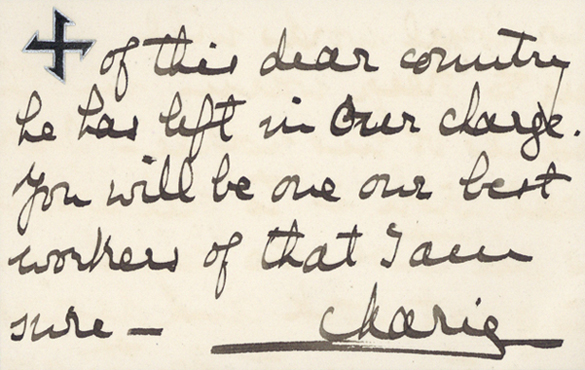 of this dear country
he has left in our charge.
You will be one our best
workers of that I am
sure — Marie